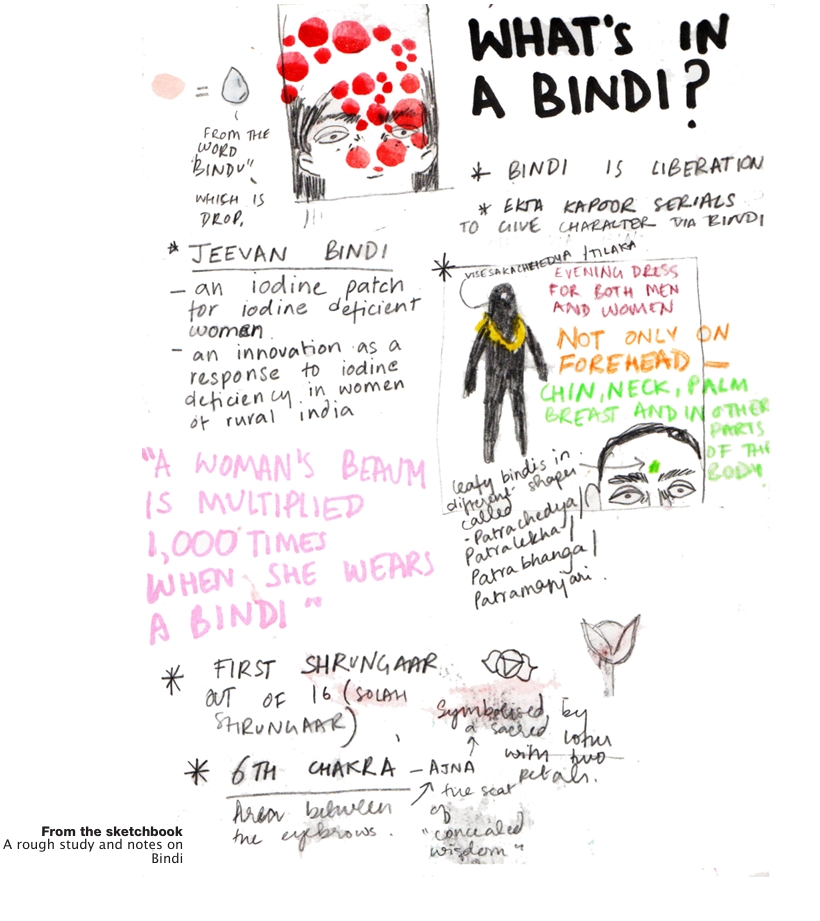 WHAT'S IN
A BINDI?
=
FROM THE
WORD
"BINDU"
WHICH IS
DROP.
* BINDI IS LIBERATION
* EKTA KAPOOR SERIALS
TO GIVE CHARACTER VIA BINDI
* JEEVAN BINDI
– an iodine patch
for iodine deficient
women
– an innovation as a
response to iodine
deficiency in women
of rural india
* VISESAKACHEHEDYA / TILAKA
EVENING DRESS
FOR BOTH MEN
AND WOMEN
NOT ONLY ON
FOREHEAD –
CHIN, NECK, PALM
BREAST AND IN OTHER
PARTS
OF THE
BODY
leafy bindis in
different shapes
called
- Patrachedya/
Patralekha/
Patrabhanga/
Patramanjari.
"A WOMAN'S BEAUTY
IS MULTIPLIED
1,000 TIMES
WHEN SHE WEARS
A BINDI"
* FIRST SHRUNGAAR
OUT OF 16 (SOLAH
SHRUNGAAR)
* 6TH CHAKRA – AJNA
Area between
the eyebrows.
Symbolised by
a sacred lotus
with two
petals.
the seat
of
"concealed
wisdom"
From the sketchbook
A rough study and notes on
Bindi